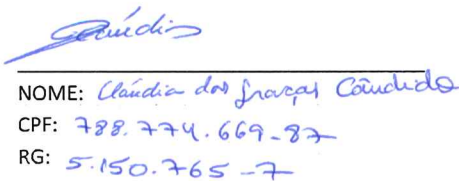 Cláudia
NOME: Cláudia das Graças Cândido
CPF: 788.774.669-87
RG: 5.150.765-7